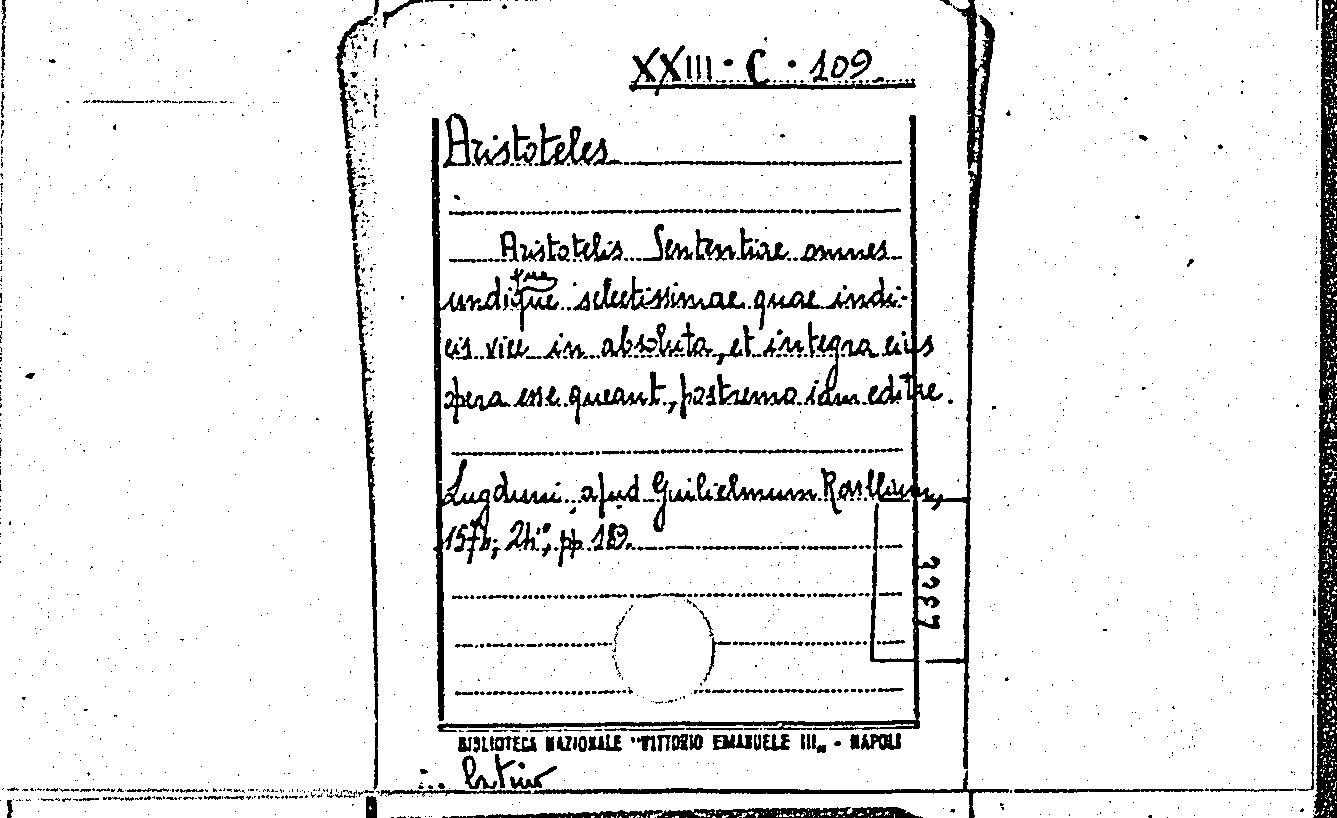 XXIII · C · 109
Aristoteles
Aristotelis Sententiae omnes
undique selectissimae quae indi-
cis vice in absoluta, et integra eius
opera esse queant, postremo iam editae.
Lugduni, apud Guilielmum
pp 189.
BIBLIOTECA NAZIONALE "VITTORIO EMANUELE III„ - NAPOLI